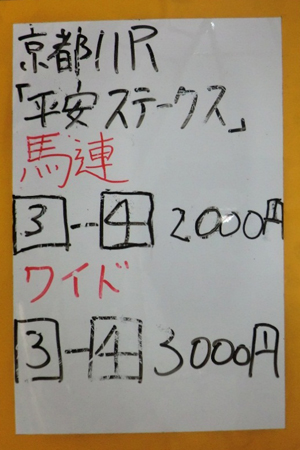 京都11R
「平安ステークス」
馬連
3-4 2000円
ワイド
3-4 3000円